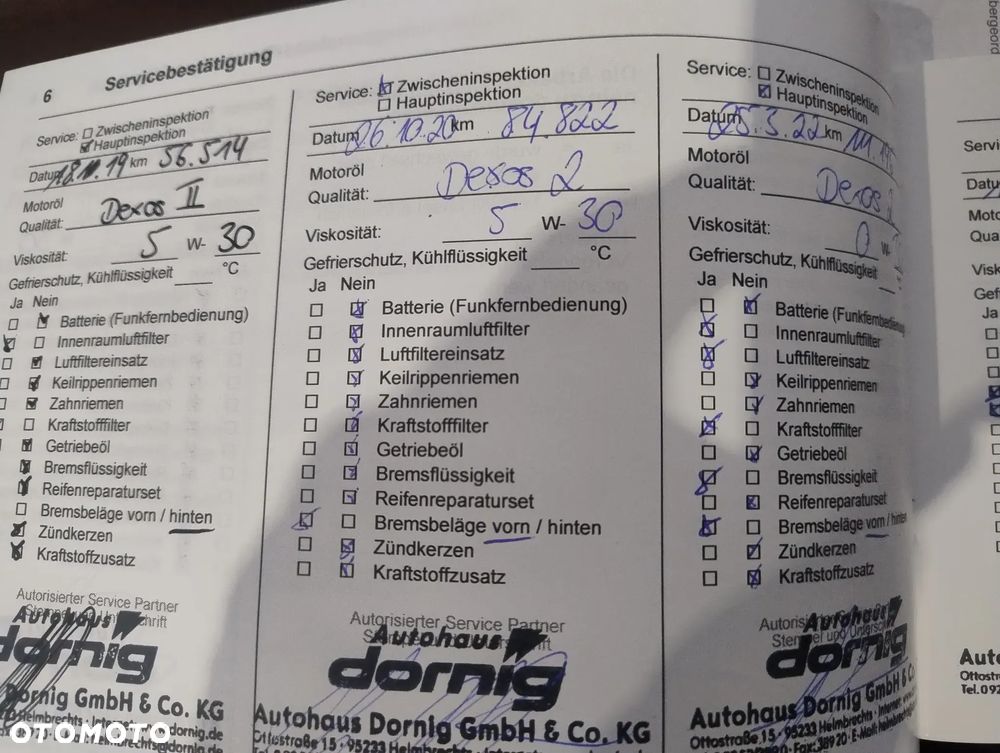 6 Servicebestätigung
Service: Zwischeninspektion
Hauptinspektion
Datum 18.11.19 km 56.514
Motoröl
Qualität: Dexos II
Viskosität: 5 W- 30
Gefrierschutz, Kühlflüssigkeit °C
Ja Nein
Batterie (Funkfernbedienung)
Innenraumluftfilter
Luftfiltereinsatz
Keilrippenriemen
Zahnriemen
Kraftstofffilter
Getriebeöl
Bremsflüssigkeit
Reifenreparaturset
Bremsbeläge vorn / hinten
Zündkerzen
Kraftstoffzusatz
Autorisierter Service Partner
Autohaus
dornig
Dornig GmbH & Co. KG
Helmbrechts
Service: Zwischeninspektion
Hauptinspektion
Datum 26.10.20 km 84 822
Motoröl
Qualität: Dexos 2
Viskosität: 5 W- 30
Gefrierschutz, Kühlflüssigkeit °C
Ja Nein
Batterie (Funkfernbedienung)
Innenraumluftfilter
Luftfiltereinsatz
Keilrippenriemen
Zahnriemen
Kraftstofffilter
Getriebeöl
Bremsflüssigkeit
Reifenreparaturset
Bremsbeläge vorn / hinten
Zündkerzen
Kraftstoffzusatz
Autorisierter Service Partner
Autohaus
dornig
Autohaus Dornig GmbH & Co. KG
Ottostraße 15 · 95233 Helmbrechts
Service: Zwischeninspektion
Hauptinspektion
Datum 25.3.22 km
Motoröl
Qualität: Dexos 2
Viskosität: 0 W-
Gefrierschutz, Kühlflüssigkeit
Ja Nein
Batterie (Funkfernbedienung
Innenraumluftfilter
Luftfiltereinsatz
Keilrippenriemen
Zahnriemen
Kraftstofffilter
Getriebeöl
Bremsflüssigkeit
Reifenreparaturset
Bremsbeläge vorn / hinten
Zündkerzen
Kraftstoffzusatz
Autorisierter
Stempel und Unterschrift
Autohaus
dornig
Autohaus Dornig GmbH & Co. KG
Ottostraße 15 · 95233 Helmbrechts
Ja
Tel. 0 92
OTOMOTO